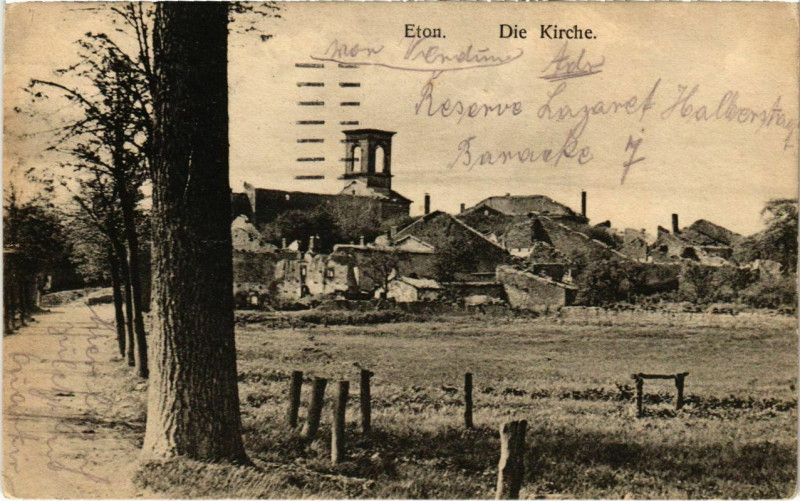 Eton. Die Kirche.
vor Verdun Adr
Reserve Lazaret Halberstag
Baracke 7